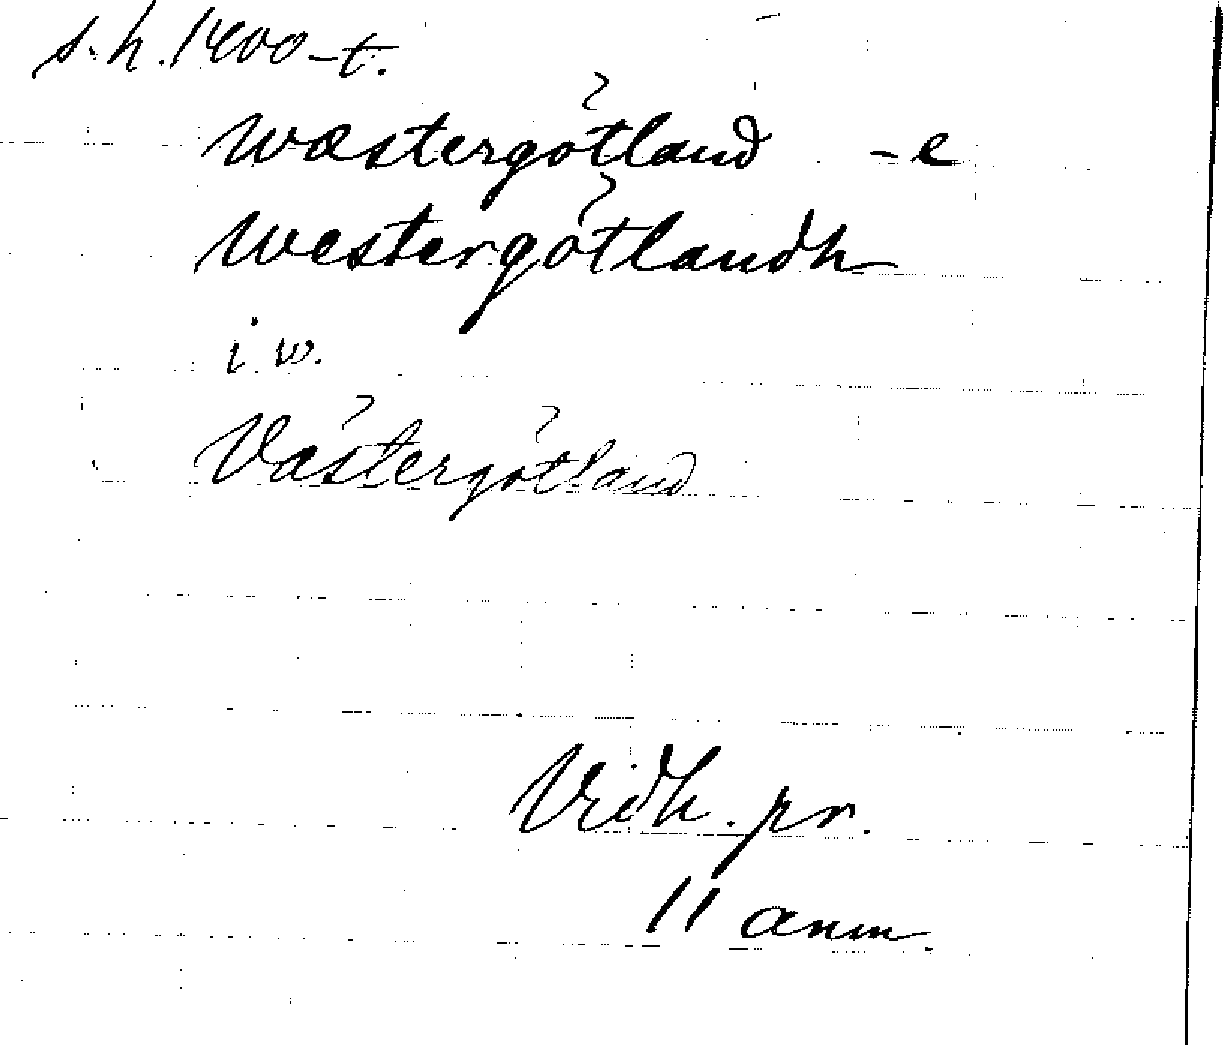 s.h. 1400-t.
wæstergötland -e
westergötlandh
i. w.
Västergötland
Vidh. pr.
11 anm.